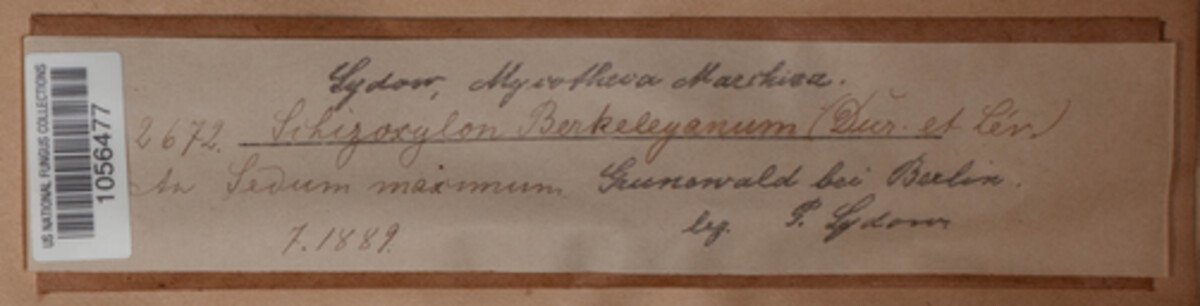 US NATIONAL FUNGUS COLLECTIONS
1056477
Sydow, Mycotheca Marchica.
2672. Schizoxylon Berkeleyanum (Dur. et Lév.)
An Sedum maximum. Grunewald bei Berlin.
7.1889. leg. P. Sydow.